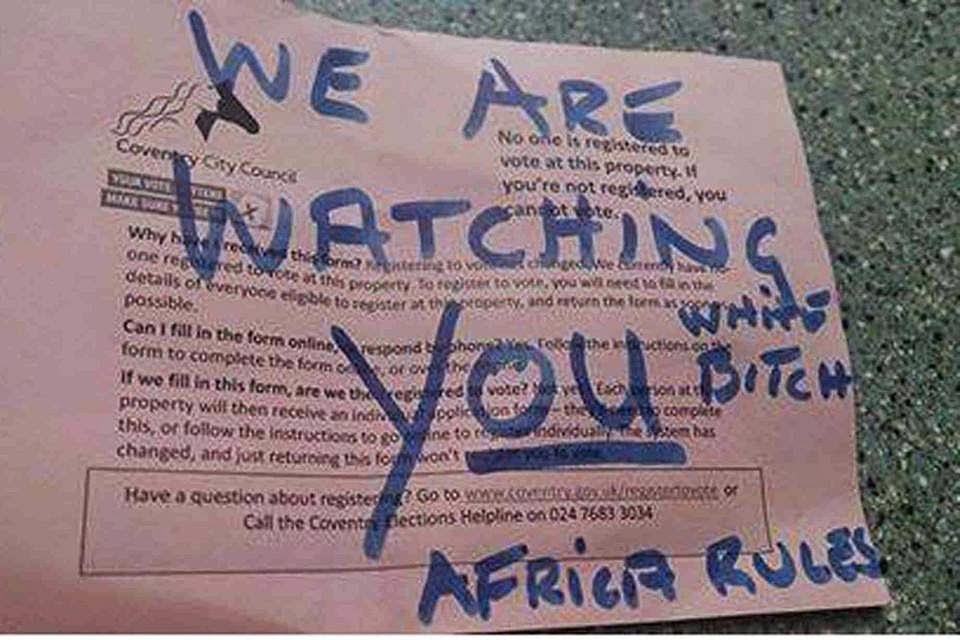 WE ARE
WATCHING
YOU
WHITE
BITCH
AFRICA RULES
Coventry City Council
No one is registered to
vote at this property. If
you're not registered, you
cannot vote.
YOUR VOTE
MAKE SURE
Why have I received this form? Registering to vote changed. We currently have no
one registered to vote at this property. To register to vote, you will need to fill in the
details of everyone eligible to register at this property, and return the form as soon
possible.
Can I fill in the form online, respond by phone? Yes. Follow the instructions on the
form to complete the form or over the
If we fill in this form, are we then registered to vote? Not yet. Each person at
property will then receive an individual application form – they need to complete
this, or follow the instructions to go online to register individually. The system has
changed, and just returning this form won't
Have a question about registering? Go to www.coventry.gov.uk/registertovote or
Call the Coventry Elections Helpline on 024 7683 3034